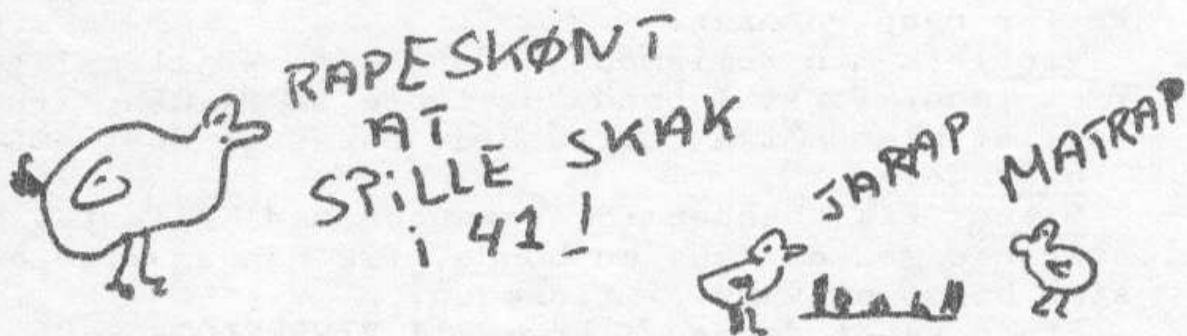 RAPESKØNT
AT
SPiLLE SKAK
i 41!
JARAP
MATRAP